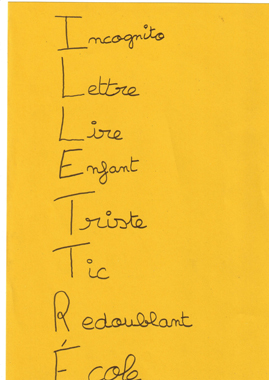 Incognito
Lettre
Lire
Enfant
Triste
Tic
Redoublant
École